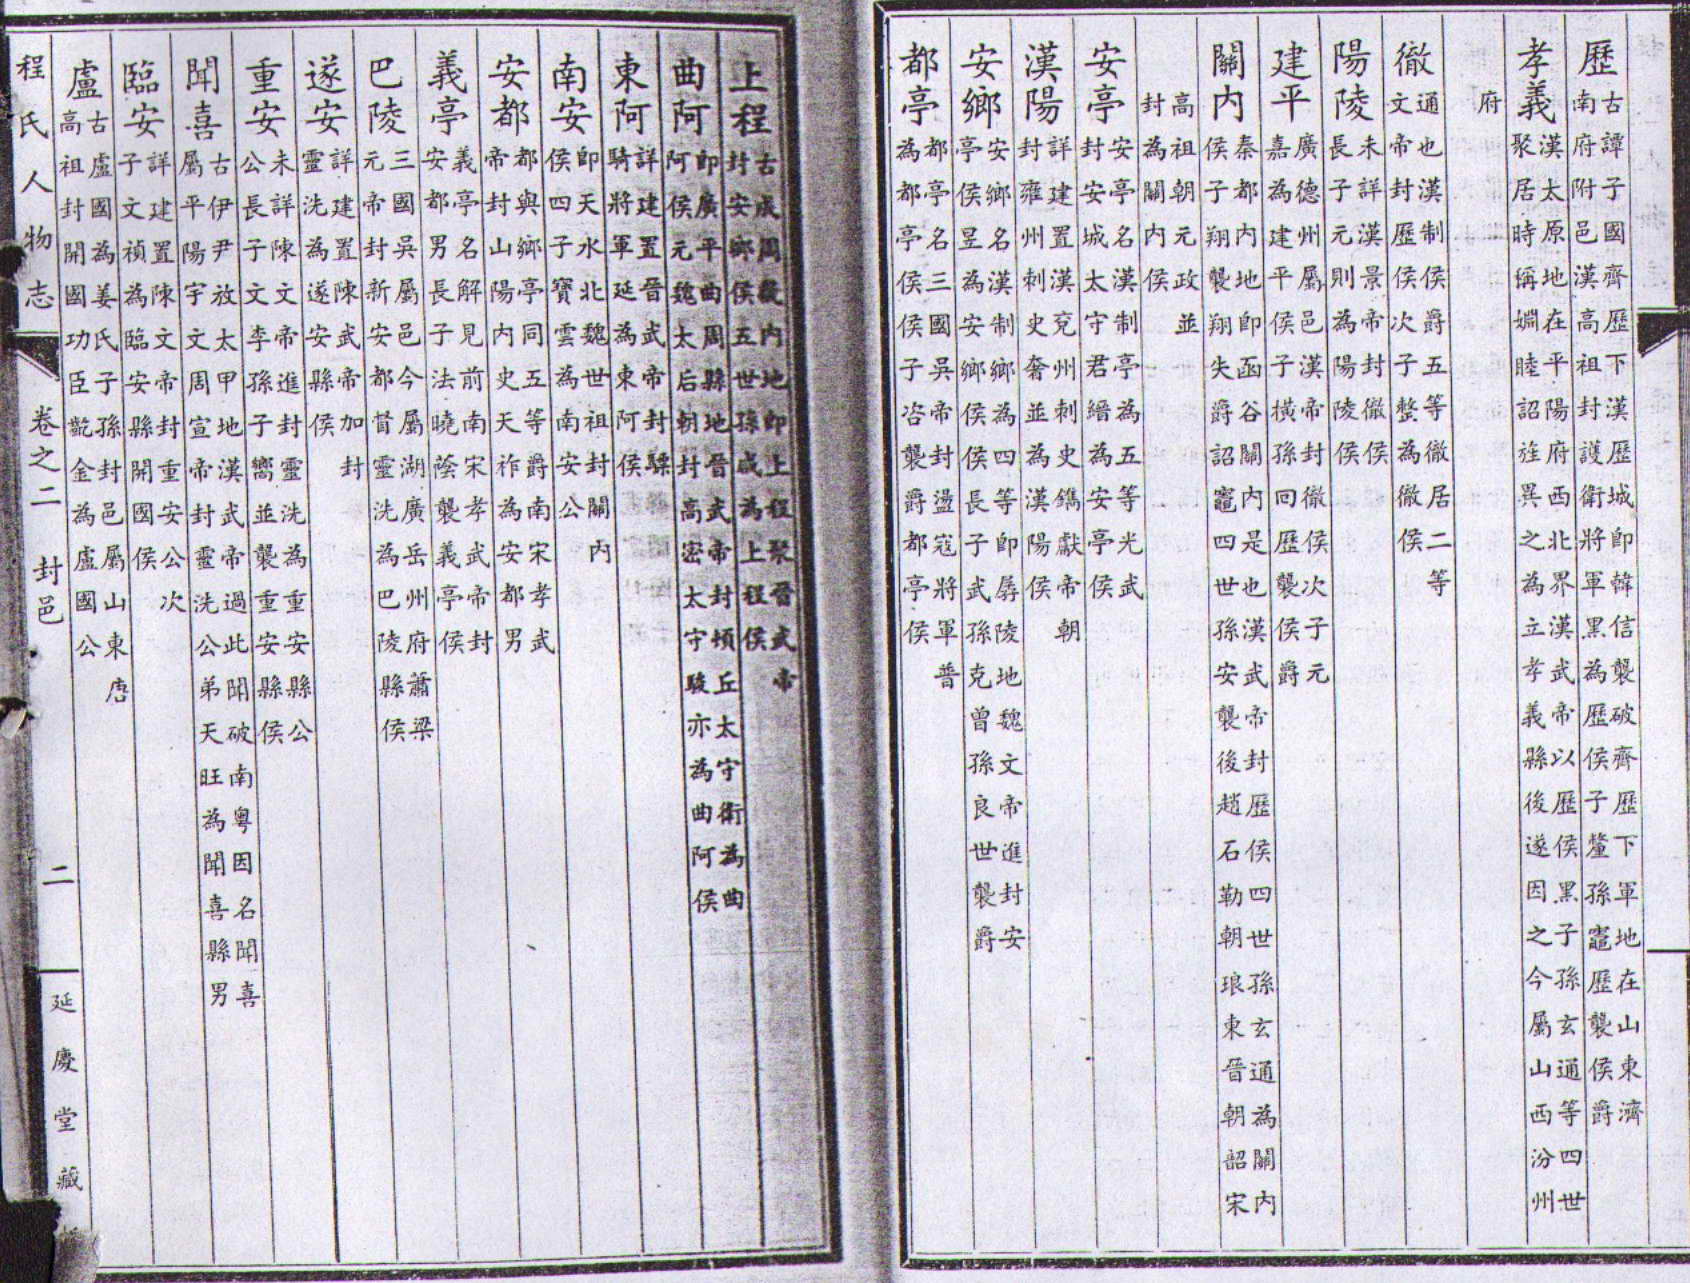 歷
古譚子國齊歷下漢歷城即韓信襲破齊歷下軍地在山東濟
南府附邑漢高祖封護衛將軍黑為歷侯子釐孫竈歷襲侯爵
孝義
漢太原地在平陽府西北界漢武帝以歷侯黑子孫玄通等四世
聚居時稱嫺睦詔旌異之為立孝義縣後遂因之今屬山西汾州
府
徹
通也漢制侯爵五等徹居二等
文帝封歷侯次子整為徹侯
陽陵
未詳漢景帝封徹侯
長子元則為陽陵侯
建平
廣德州屬邑漢帝封徹侯次子元
嘉為建平侯子橫孫回歷襲侯爵
關內
秦都內地即函谷關內是也漢武帝封歷侯四世孫玄通為關內
侯子翔襲翔失爵詔竈四世孫安襲後趙石勒朝琅東晉朝韶宋
高祖朝元政並
封為關內侯
安亭
安亭名漢制亭為五等光武
封安城太守君縉為安亭侯
漢陽
詳建置漢兗州刺史鐫獻帝朝
封雍州刺史奢並為漢陽侯
安鄉
安鄉名漢制鄉為四等即孱陵地魏文帝進封安
亭侯昱為安鄉侯長子武孫克曾孫良世襲爵
都亭
都亭名三國吳帝封盪寇將軍普
為都亭侯子咨襲爵都亭侯
上程
古成周畿內地即上程聚晉武帝
封安鄉侯五世孫咸為上程侯
曲阿
即廣平曲周縣地晉武帝封頓丘太守衛為曲
阿侯元魏太后朝封高密太守駿亦為曲阿侯
東阿
詳建置晉武帝封驃
騎將軍延為東阿侯
南安
即天水北魏世祖封關內
侯四子寶雲為南安公
安都
都與鄉亭同五等爵南宋孝武
帝封山陽內史天祚為安都男
義亭
義亭名解見前南宋孝武帝封
安都男長子法曉蔭襲義亭侯
巴陵
三國吳屬邑今屬湖廣岳州府蕭梁
元帝封新安都督靈洗為巴陵縣侯
遂安
詳建置陳武帝加封
靈洗為遂安縣侯
重安
未詳陳文帝進封靈洗為重安縣公
公長子文季孫子嚮並襲重安縣侯
聞喜
古伊尹放太甲地漢武帝過此聞破南粵因名聞喜
屬平陽宇文周宣帝封靈洗公弟天旺為聞喜縣男
臨安
詳建置陳文帝封重安公次
子文禎為臨安縣開國侯
盧
古盧國為姜氏子孫封邑屬山東唐
高祖封開國功臣齔金為盧國公
程氏人物志
卷之二
封邑
二
延慶堂藏